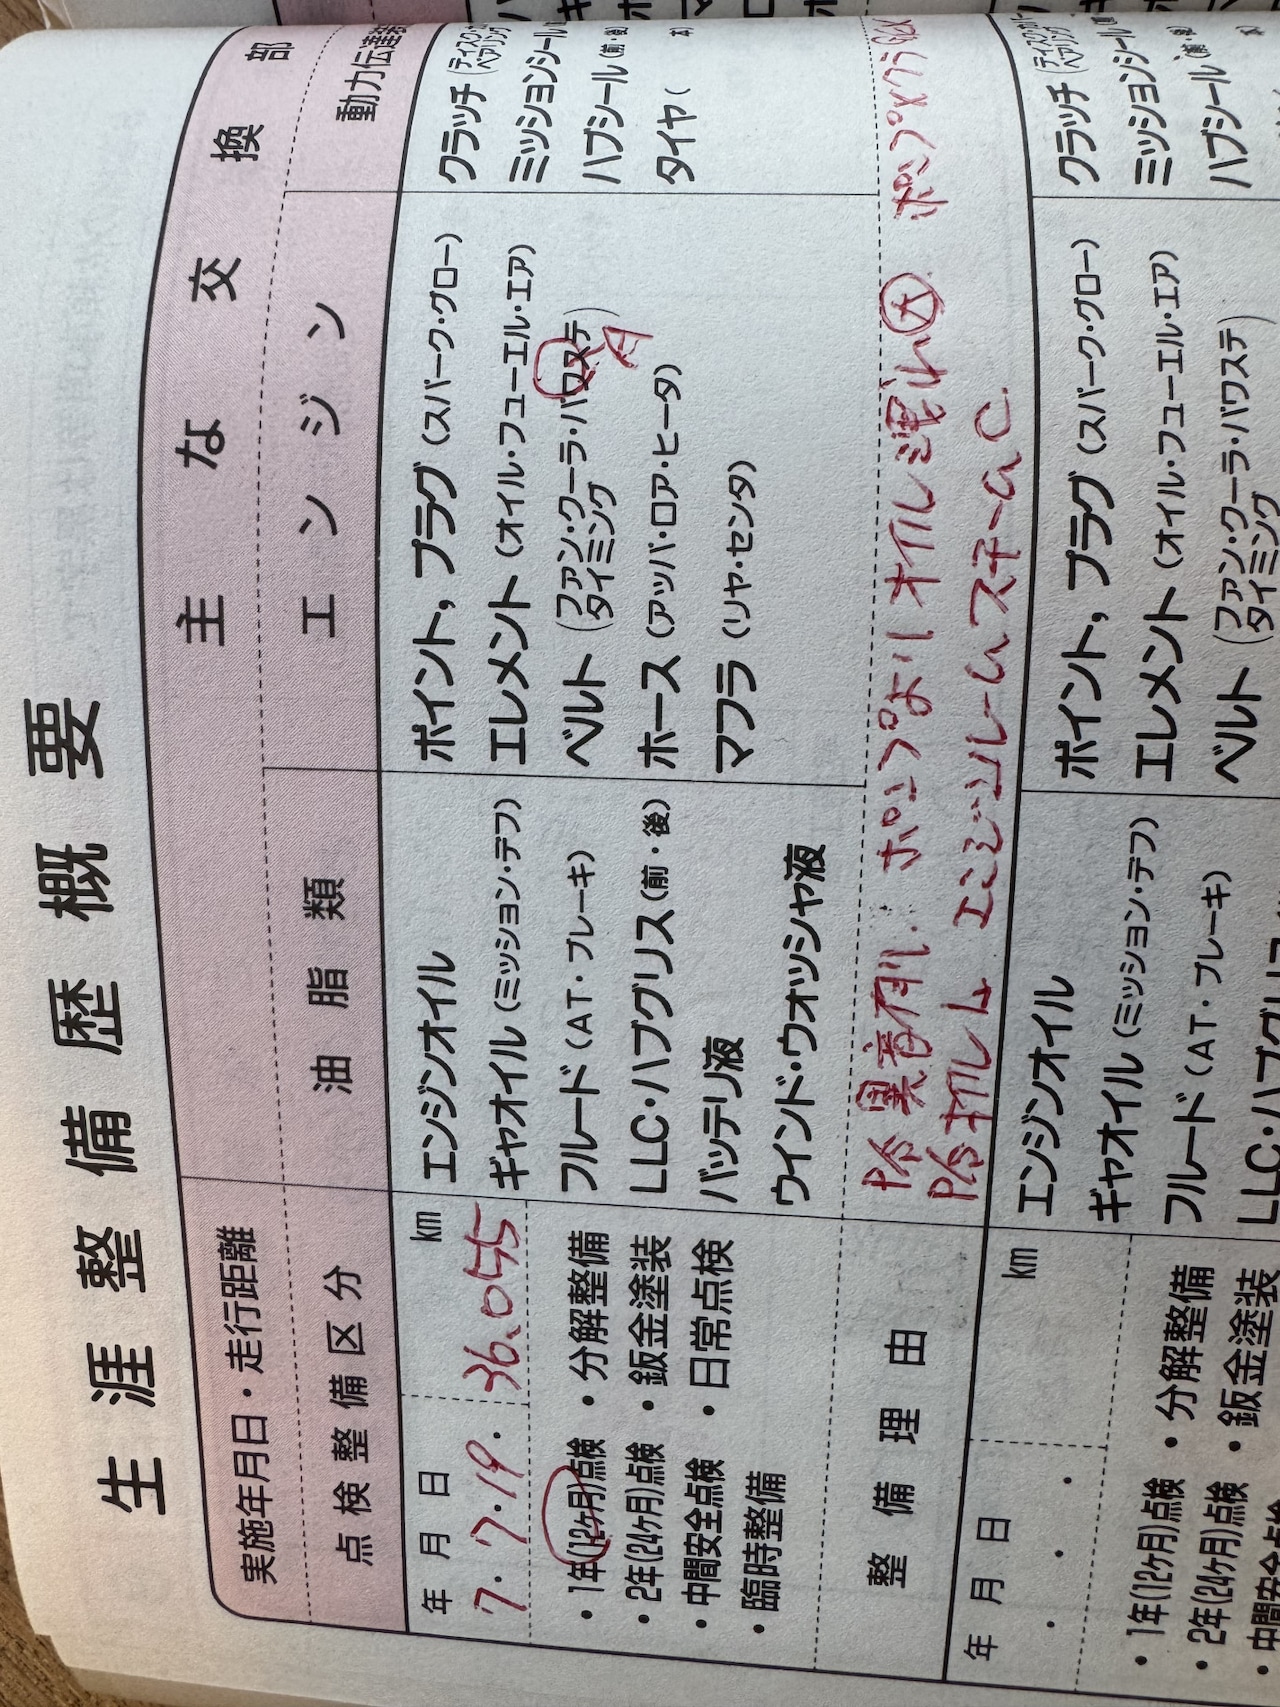 生涯整備歴概要
実施年月日・走行距離
点検整備区分
主な交換部
油脂類
エンジン
動力伝達
年 月 日
km
7.7.19.
36,055
・1年(12ヶ月)点検
・分解整備
・2年(24ヶ月)点検
・鈑金塗装
・中間安全点検
・日常点検
・臨時整備
エンジンオイル
ギヤオイル(ミッション・デフ)
フルード(AT・ブレーキ)
LLC・ハブグリス(前・後)
バッテリ液
ウインド・ウォッシャ液
ポイント,プラグ(スパーク・グロー)
エレメント(オイル・フューエル・エア)
ベルト(ファン・クーラ・パワステ
タイミング)
A
ホース(アッパ・ロア・ヒータ)
マフラ(リヤ・センタ)
クラッチ(ディスク
ベアリング
ミッションシール
ハブシール(前・後)
タイヤ( 本)
整備理由
P/S 異音有り. ポンプよりオイル洩れ Ⓐ. ポンプ
P/Sオイル エンジンルームスチームC.
年 月 日
km
・ ・ ・
・1年(12ヶ月)点検
・分解整備
・2年(24ヶ月)点検
・鈑金塗装
・中間安全点検
エンジンオイル
ギヤオイル(ミッション・デフ)
フルード(AT・ブレーキ)
LLC・ハブグリス
ポイント,プラグ(スパーク・グロー)
エレメント(オイル・フューエル・エア)
ベルト(ファン・クーラ・パワステ
タイミング
クラッチ
ミッションシール
ハブシール